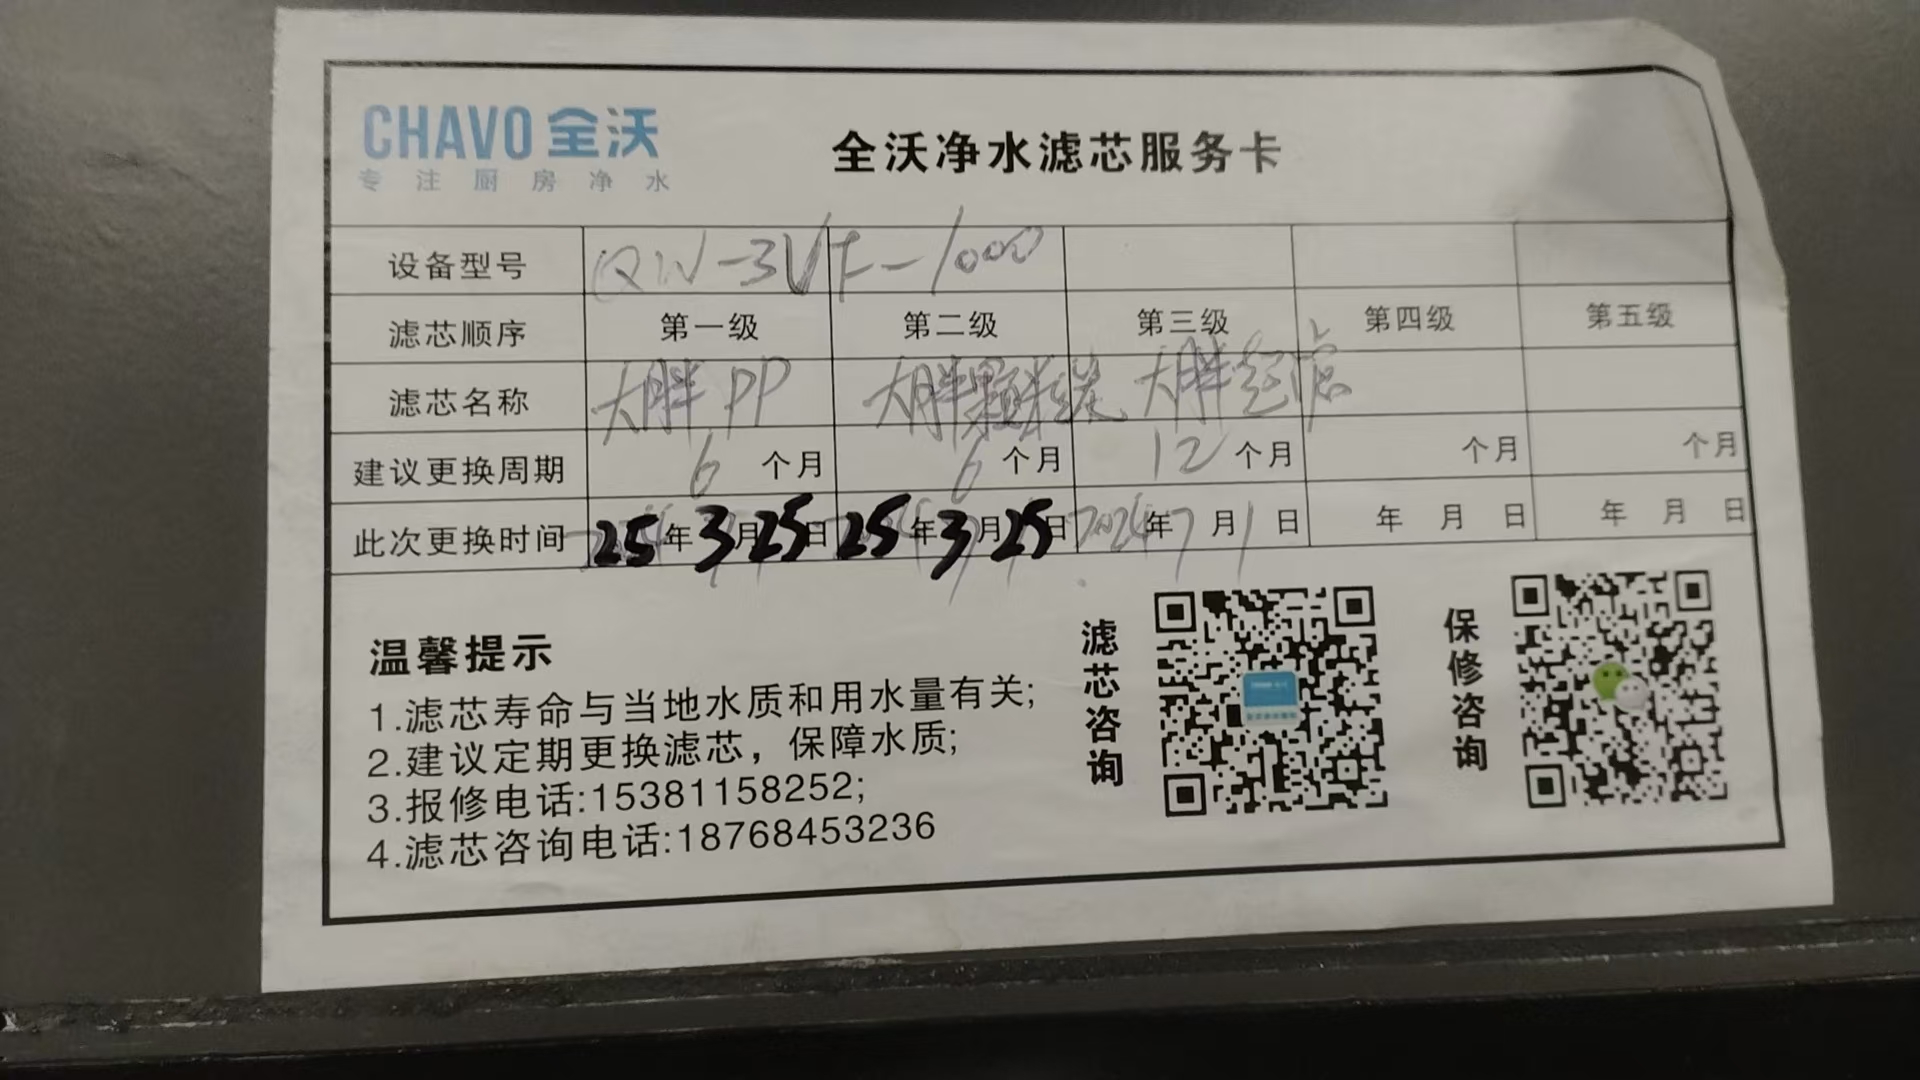 CHAVO 全沃
专注厨房净水
全沃净水滤芯服务卡
设备型号 QW-3VF-1000
滤芯顺序 第一级 第二级 第三级 第四级 第五级
滤芯名称 大胖PP 大胖颗粒炭 大胖超滤
建议更换周期 6 个月 6 个月 12 个月 个月 个月
此次更换时间 25年3月25日 25年3月25日 2024年7月1日 年 月 日 年 月 日
温馨提示
1.滤芯寿命与当地水质和用水量有关;
2.建议定期更换滤芯，保障水质;
3.报修电话:15381158252;
4.滤芯咨询电话:18768453236
滤芯咨询
保修咨询